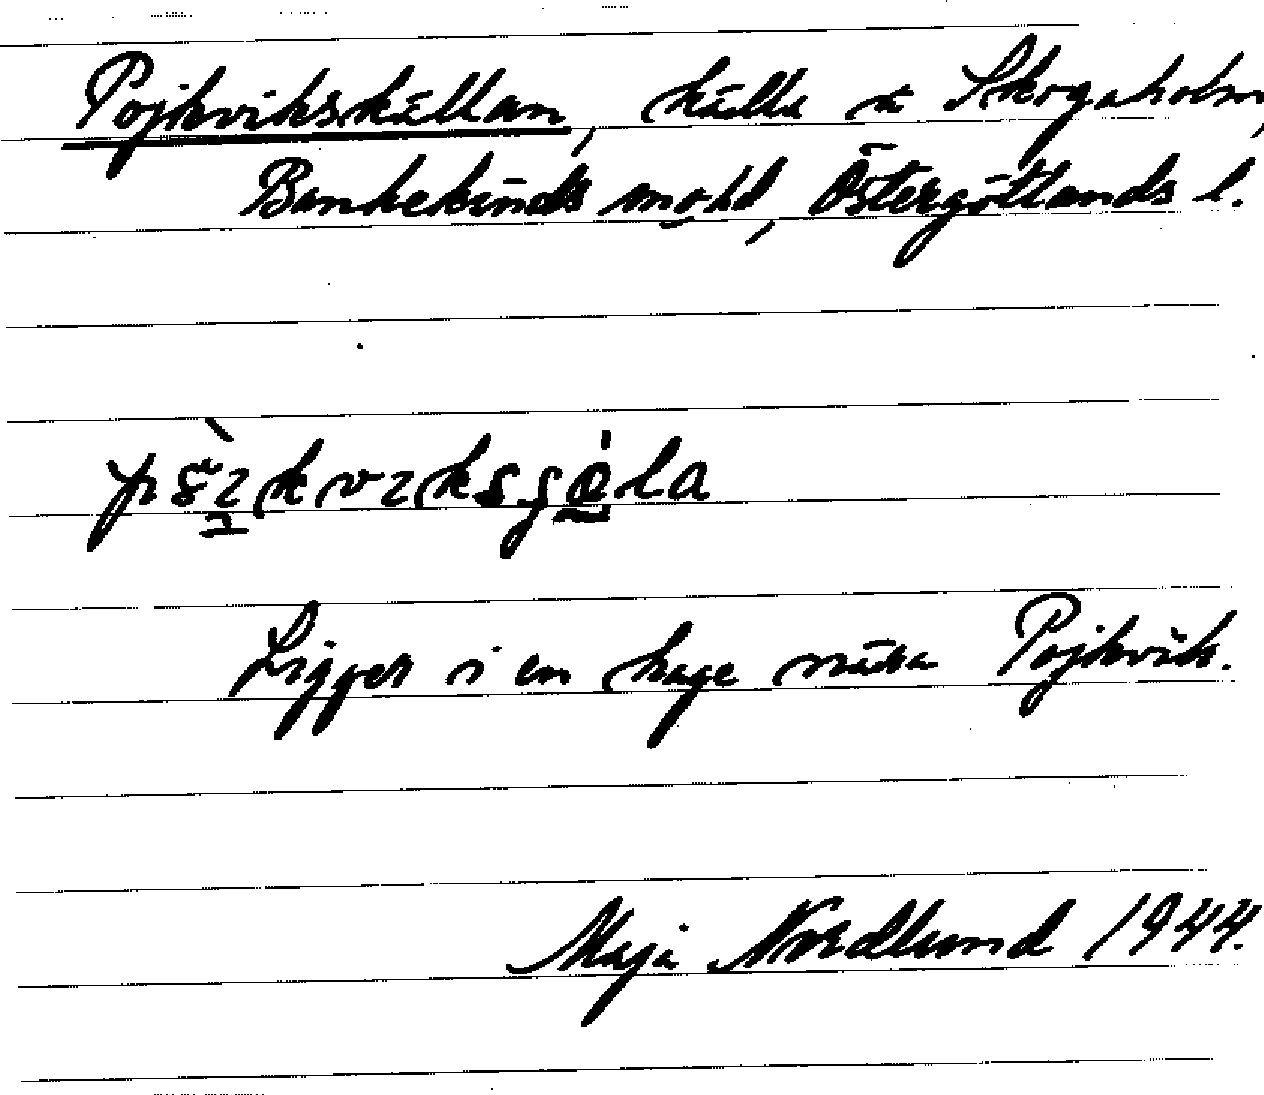 Pojkvikskällan, källa å Skogaholm,
Bankekinds sn o hd, Östergötlands l.
Ligger i en hage nära Pojkvik.
Maja Nordlund 1944.